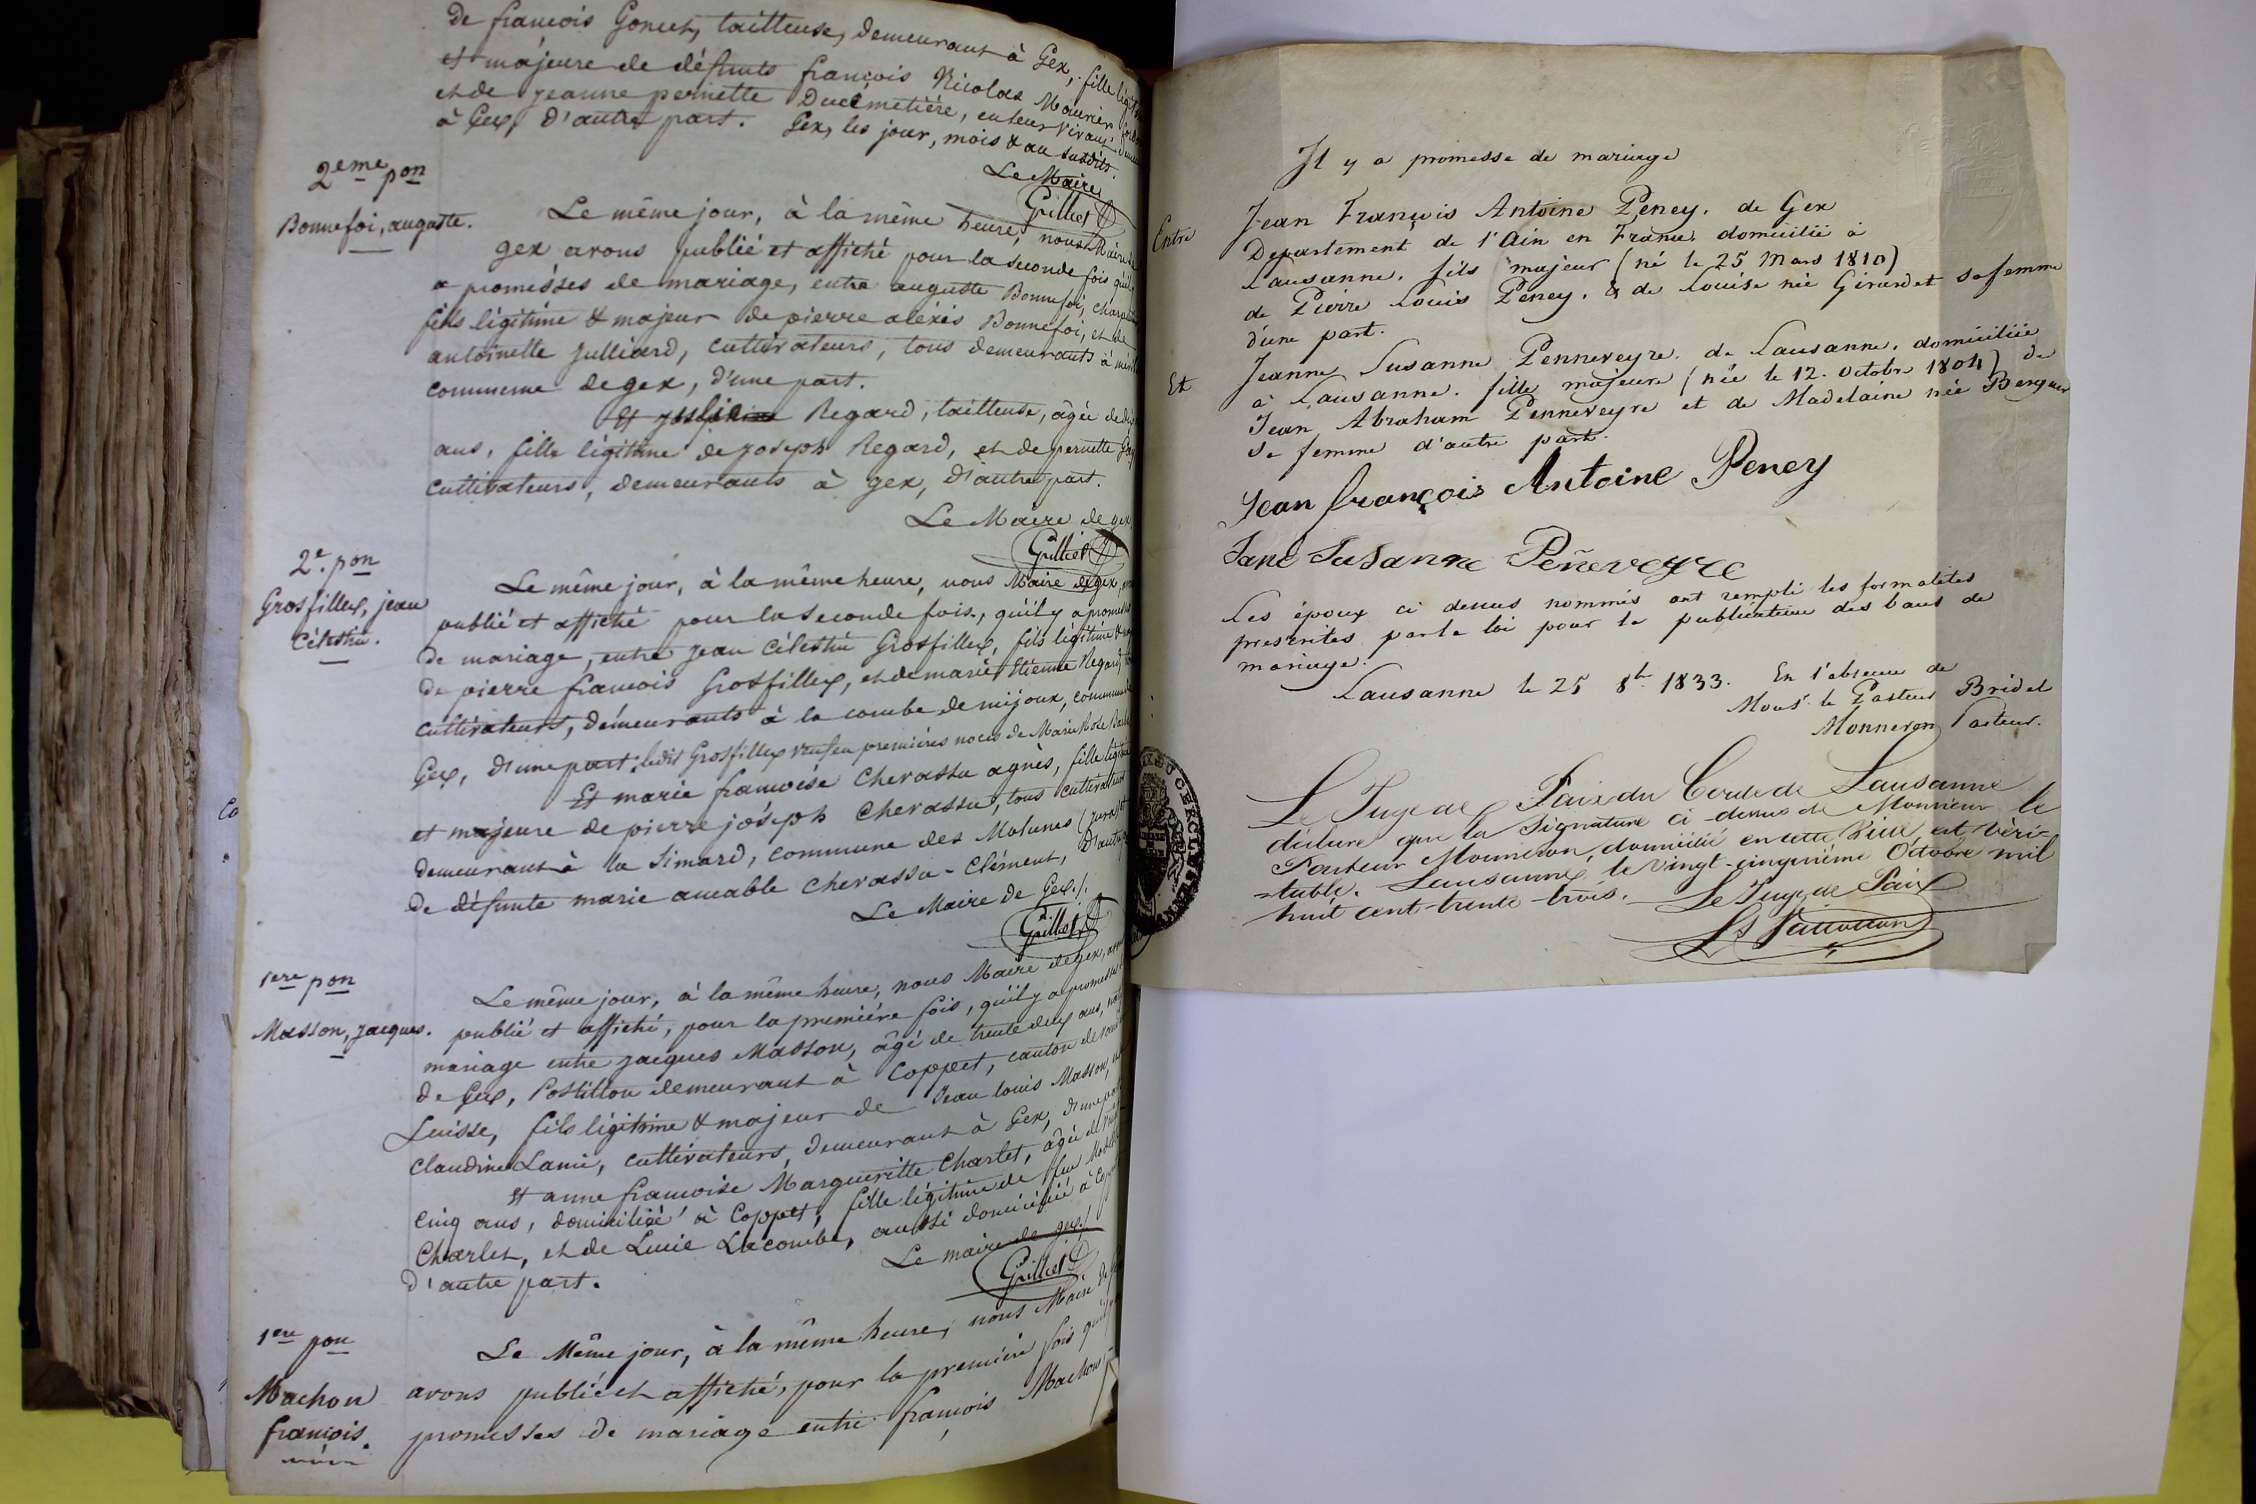 de françois Goncet, tailleuse, demeurant à Gex, fille légit
et majeure de défunts françois Nicolas Maurier
et de jeanne pernette Ducimetière, en leur vivant
à Gex, d'autre part. Gex, les jour, mois & an susdits.
Le Maire
Grilliet
2eme pon
Bonnefoi, auguste.
Le même jour, à la même heure, nous Maire de
gex avons publié et affiché pour la seconde fois qu'il y
a promesses de mariage, entre auguste Bonnefoi,
fils légitime & majeur de pierre aléxis Bonnefoi, et de
antoinette Julliard, cultivateurs, tous demeurants à
commune de gex, d'une part.
Et Regard, tailleuse, âgée de
ans, fille légitime de joseph Regard, et de pernette
cultivateurs, demeurants à gex, d'autre part.
Le Maire de gex.
Grilliet
2e. pon
Grosfillex, jean
Célestin.
Le même jour, à la même heure, nous Maire de gex,
publié et affiché pour la seconde fois, qu'il y a promesses
de mariage, entre jean Célestin Grosfillex, fils légitime &
de pierre françois Grosfillex, et de marie Etienne Regard,
cultivateurs, demeurants à la combe de mijoux, commune de
Gex, d'une part; ledit Grosfillex veuf en premières noces de Marie Rose
Et marie françoise Chevassu agnès, fille légitime
et majeure de pierre joseph Chevassu, tous cultivateurs
demeurant à la Simard, commune des Molunes (jura) et
de défunte marie aimable Chevassu-Clément, d'autre
Le Maire de Gex./.
Grilliet
1ere pon
Masson, jacques.
Le même jour, à la même heure, nous Maire de gex,
publié et affiché, pour la première fois, qu'il y a promesses
mariage entre jacques Masson, âgé de trente deux ans,
de Gex, Postillon demeurant à Coppet, canton de
Suisse, fils légitime & majeur de Jean louis Masson,
Claudine Lami, cultivateurs, demeurant à Gex, d'une part
Et anne françoise Margueritte Charlet, âgée de
cinq ans, domiciliée à Coppet, fille légitime de feu
Charlet, et de Lucie Lacombe, aussi domiciliée à
d'autre part.
Le maire de gex./
Grilliet
1ere pon
Machon
françois.
Le Même jour, à la même heure, nous Maire de
avons publié et affiché, pour la première fois qu'il
promesses de mariage entre françois Machon
Il y a promesse de mariage
Entre Jean François Antoine Peney. de Gex
Departement de l'Ain en France. domicilié à
Lausanne. fils majeur (né le 25 Mars 1810)
de Pierre Louis Peney. & de Louise née Girardet sa femme
d'une part.
Et Jeanne Susanne Penneveyre. de Lausanne. domiciliée
à Lausanne. fille majeure (née le 12. Octobre 1804) de
Jean Abraham Penneveyre et de Madelaine née
sa femme d'autre part.
Jean françois Antoine Peney
Jane Susanne Peñeveyre
Les époux ci dessus nommés ont rempli les formalités
prescrites par la loi pour la publication des bans de
mariage.
Lausanne le 25 8bre 1833. En l'absence de
Monsr. le Pasteur Bridel
Monneron Pasteur.
Le Juge de Paix du Cercle de Lausanne
déclare que la signature ci-dessus de Monsieur le
Pasteur Monneron, domicilié en cette Ville, est véri-
-table. Lausanne, le vingt-cinquième Octobre mil
huit cent trente-trois. Le Juge de Paix